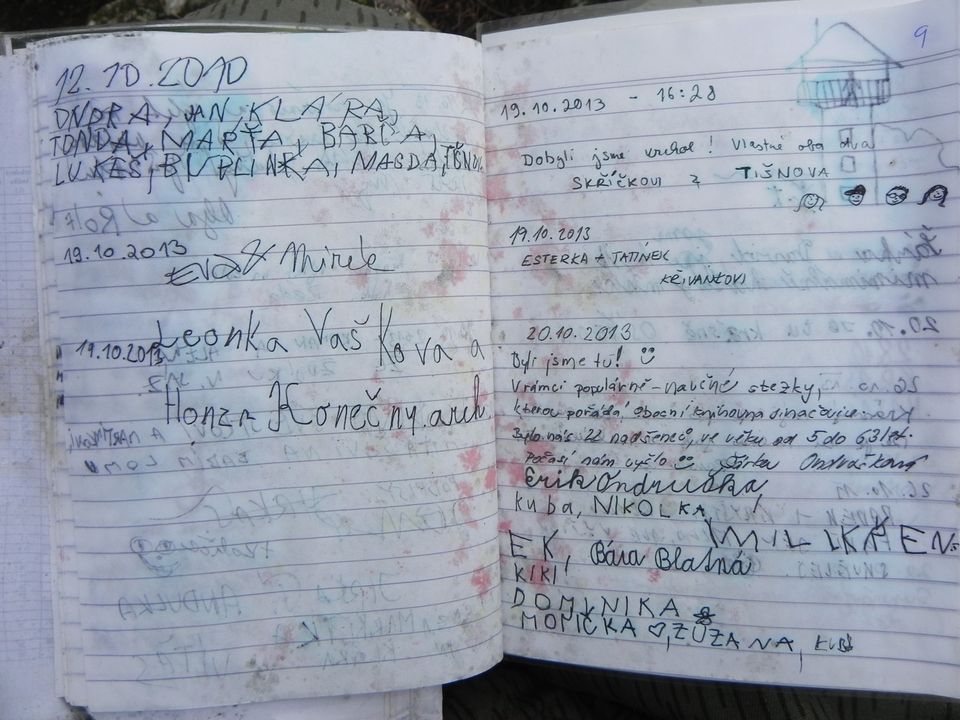 12.10.2010
ONDRA, JAN, KLÁRA,
TONDA, MARŤA, BARČA,
LUKEŠ, BUBLINKA, MAGDA,
19.10.2013
EVA & Mirek
19.10.2013
Leonka Vaš Kova a
Honza Konečny. arch.
9
19.10.2013 - 16:28
Dobyli jsme vrchol! Vlastně oba dva
SKŘÍČKOVI z TIŠNOVA
19.10.2013
ESTERKA + TATÍNEK
KŘIVÁNKOVI
20.10.2013
Byli jsme tu!
V rámci populárně-naučné stezky,
kterou pořádá obecní knihovna
Bylo nás 22 nadšenců, ve věku od 5 do 63 let.
Počasí nám vyšlo Šárka Ondráčková
Erik Ondruška,
Kuba, NIKOLKA,
MILI KŘEN
EK, Bára Blatná
KIKI
DOMINIKA
MONIČKA ♡, ZUZANA,